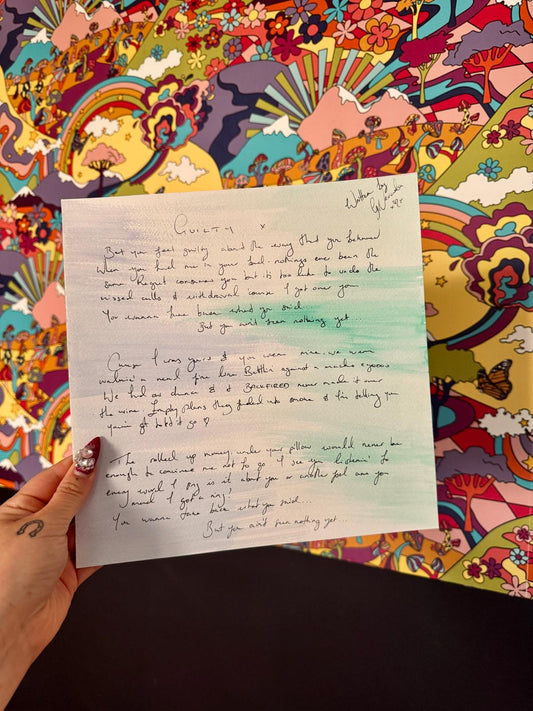 Written by
GUILTY x
Bet you feel guilty about the way that you behaved
When you had me in your bed. nothings ever been the
same. Regret consumes you but its too late to undo the
missed calls & withdrawal cause I got over you.
You wanna take back what you said...
But you ain't seen nothing yet...
Cause I was yours & you were mine, we were
walkin' a fine line Battlin' against a
We had our chance & it BACKFIRED never made it over
the line. Empty plans they faded into smoke & I'm telling you
you've got to let it go ♡
The rolled up money under your pillow would never be
enough to convince me not to go I see you listenin' to
every word I sing is it about you or another just one you
I got a ring?
You wanna take back what you said...
But you ain't seen nothing yet...